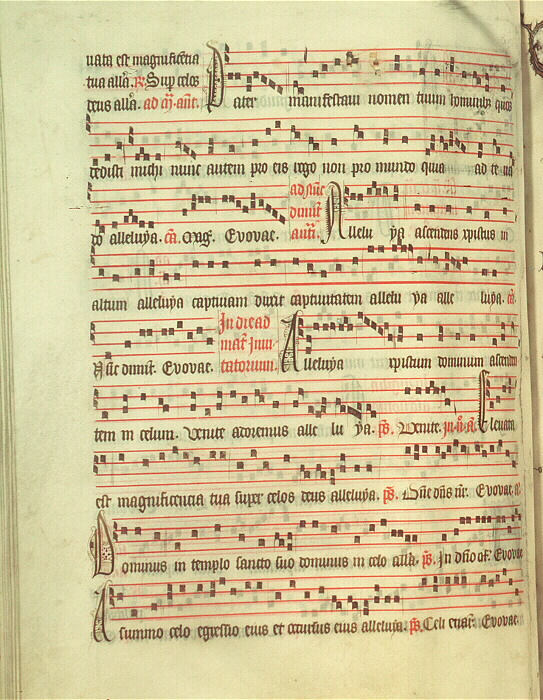 uata est magnificentia
tua alla. R. Sup celos
deus alla. ad M. ant. Pater manifestaui nomen tuum hominibus quos
dedisti michi nunc autem pro eis rogo non pro mundo quia ad te ua
do alleluya. ca. Mag. Evovae. ad nunc dimit. ant. Alleluya ascendens xpistus in
altum alleluya captiuam duxit captiuitatem alleluya alleluya. ca.
Nunc dimit. Evovae. In die ad mat. inuitatorium. Alleluya xpistum dominum ascenden
tem in celum. Venite adoremus alleluya. ps. Venite. Eleuata
est magnificentia tua super celos deus alleluya. ps. Dne dns nr. Evovae.
Dominus in templo sancto suo dominus in celo alla. ps. In dno 9f. Evovae
A summo celo egressio eius et occursus eius alleluya. ps. Celi enar. Evovae.